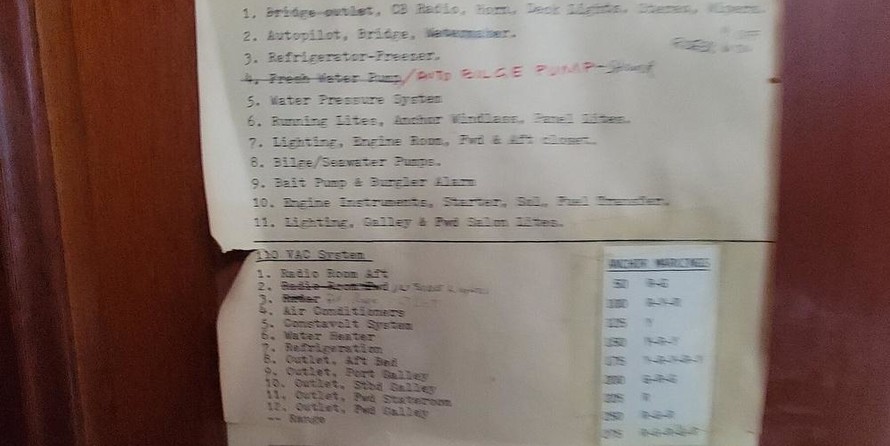 1. Bridge outlet, CB Radio, Horn, Deck Lights, Stereo, Wipers.
2. Autopilot, Bridge, Watermaker.
3. Refrigerator-Freezer.
4. Fresh Water Pump/AUTO BILGE PUMP-
5. Water Pressure System
6. Running Lites, Anchor Windlass, Panel Lites.
7. Lighting, Engine Room, Fwd & Aft closet.
8. Bilge/Seawater Pumps.
9. Bait Pump & Burgler Alarm
10. Engine Instruments, Starter, Sol, Fuel Transfer.
11. Lighting, Galley & Fwd Salon Lites.
110 VAC System
1. Radio Room Aft
2. Radio Room Fwd
3. Radar
4. Air Conditioners
5. Constavolt System
6. Water Heater
7. Refrigeration
8. Outlet, Aft Bed
9. Outlet, Port Galley
10. Outlet, Stbd Galley
11. Outlet, Fwd Stateroom
12. Outlet, Fwd Galley
-- Range
ANCHOR MARKINGS
50
100
125 Y
150
175
200
225 R
250
275